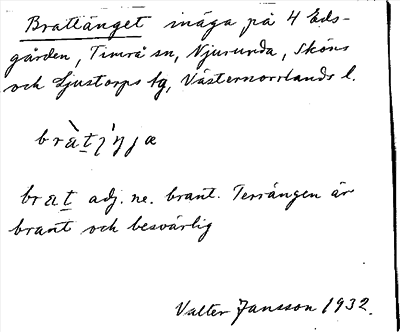 Brattänget inäga på 4 Eds-
gården, Timrå sn, Njurunda, Sköns
och Ljustorps tg, Västernorrlands l.
brat adj. ne. brant. Terrängen är
brant och besvärlig
Valter Jansson 1932.